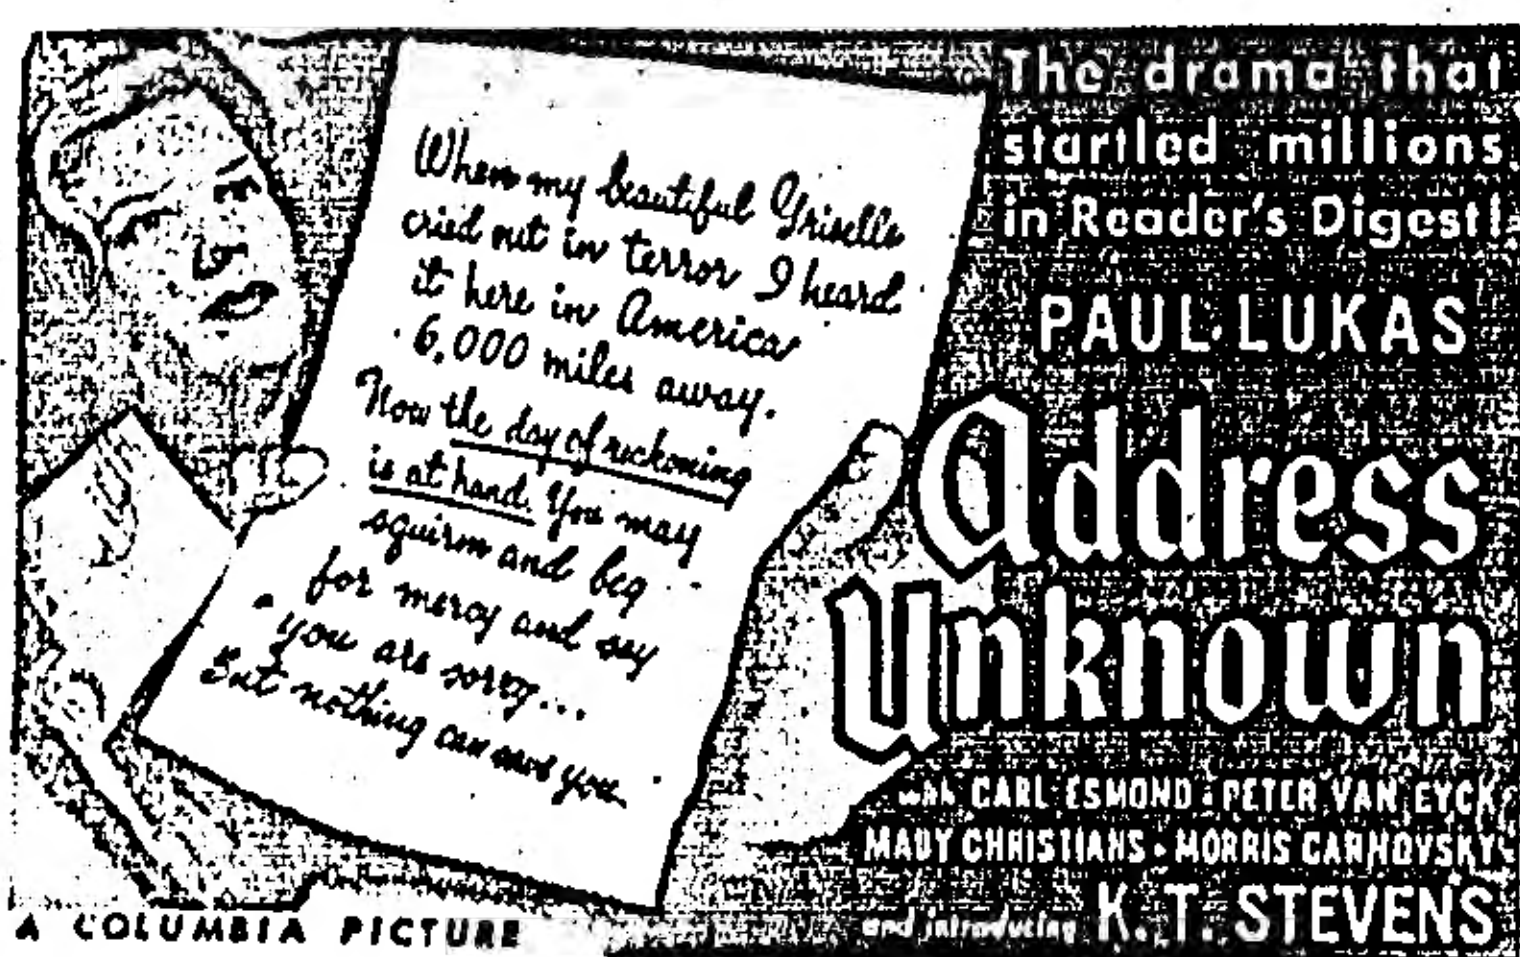 When my beautiful Griselle
cried out in terror I heard
it here in America
6,000 miles away.
Now the day of reckoning
is at hand. You may
squirm and beg
for mercy and say
you are sorry...
But nothing can save you
The drama that
startled millions
in Reader's Digest!
PAUL LUKAS
Address
Unknown
with CARL ESMOND • PETER VAN EYCK
MADY CHRISTIANS • MORRIS CARNOVSKY
and introducing K. T. STEVENS
A COLUMBIA PICTURE